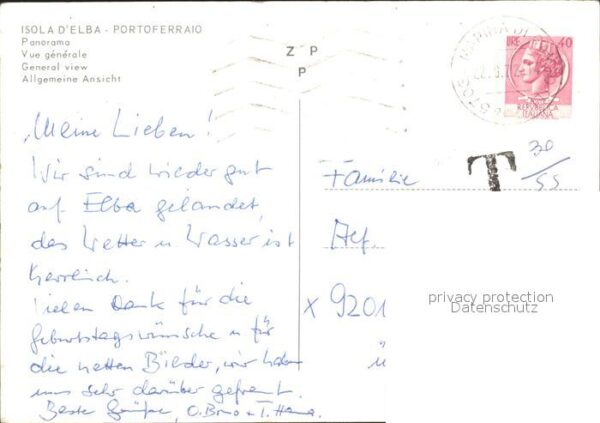 ISOLA D'ELBA - PORTOFERRAIO
Panorama
Vue générale
General view
Allgemeine Ansicht
Z P
P
MARINA DI
LIRE 40
REPVBBLICA
ITALIANA
T
30/55
Meine Lieben!
Wir sind wieder gut
auf Elba gelandet,
das Wetter u Wasser ist
herrlich.
Vielen Dank für die
Geburtstagswünsche u für
die netten Bilder, wir haben
uns sehr darüber gefreut.
Beste Grüße, O. Bruno u. T. Hanna.
Familie
Alf.
x 9201
ü
privacy protection
Datenschutz